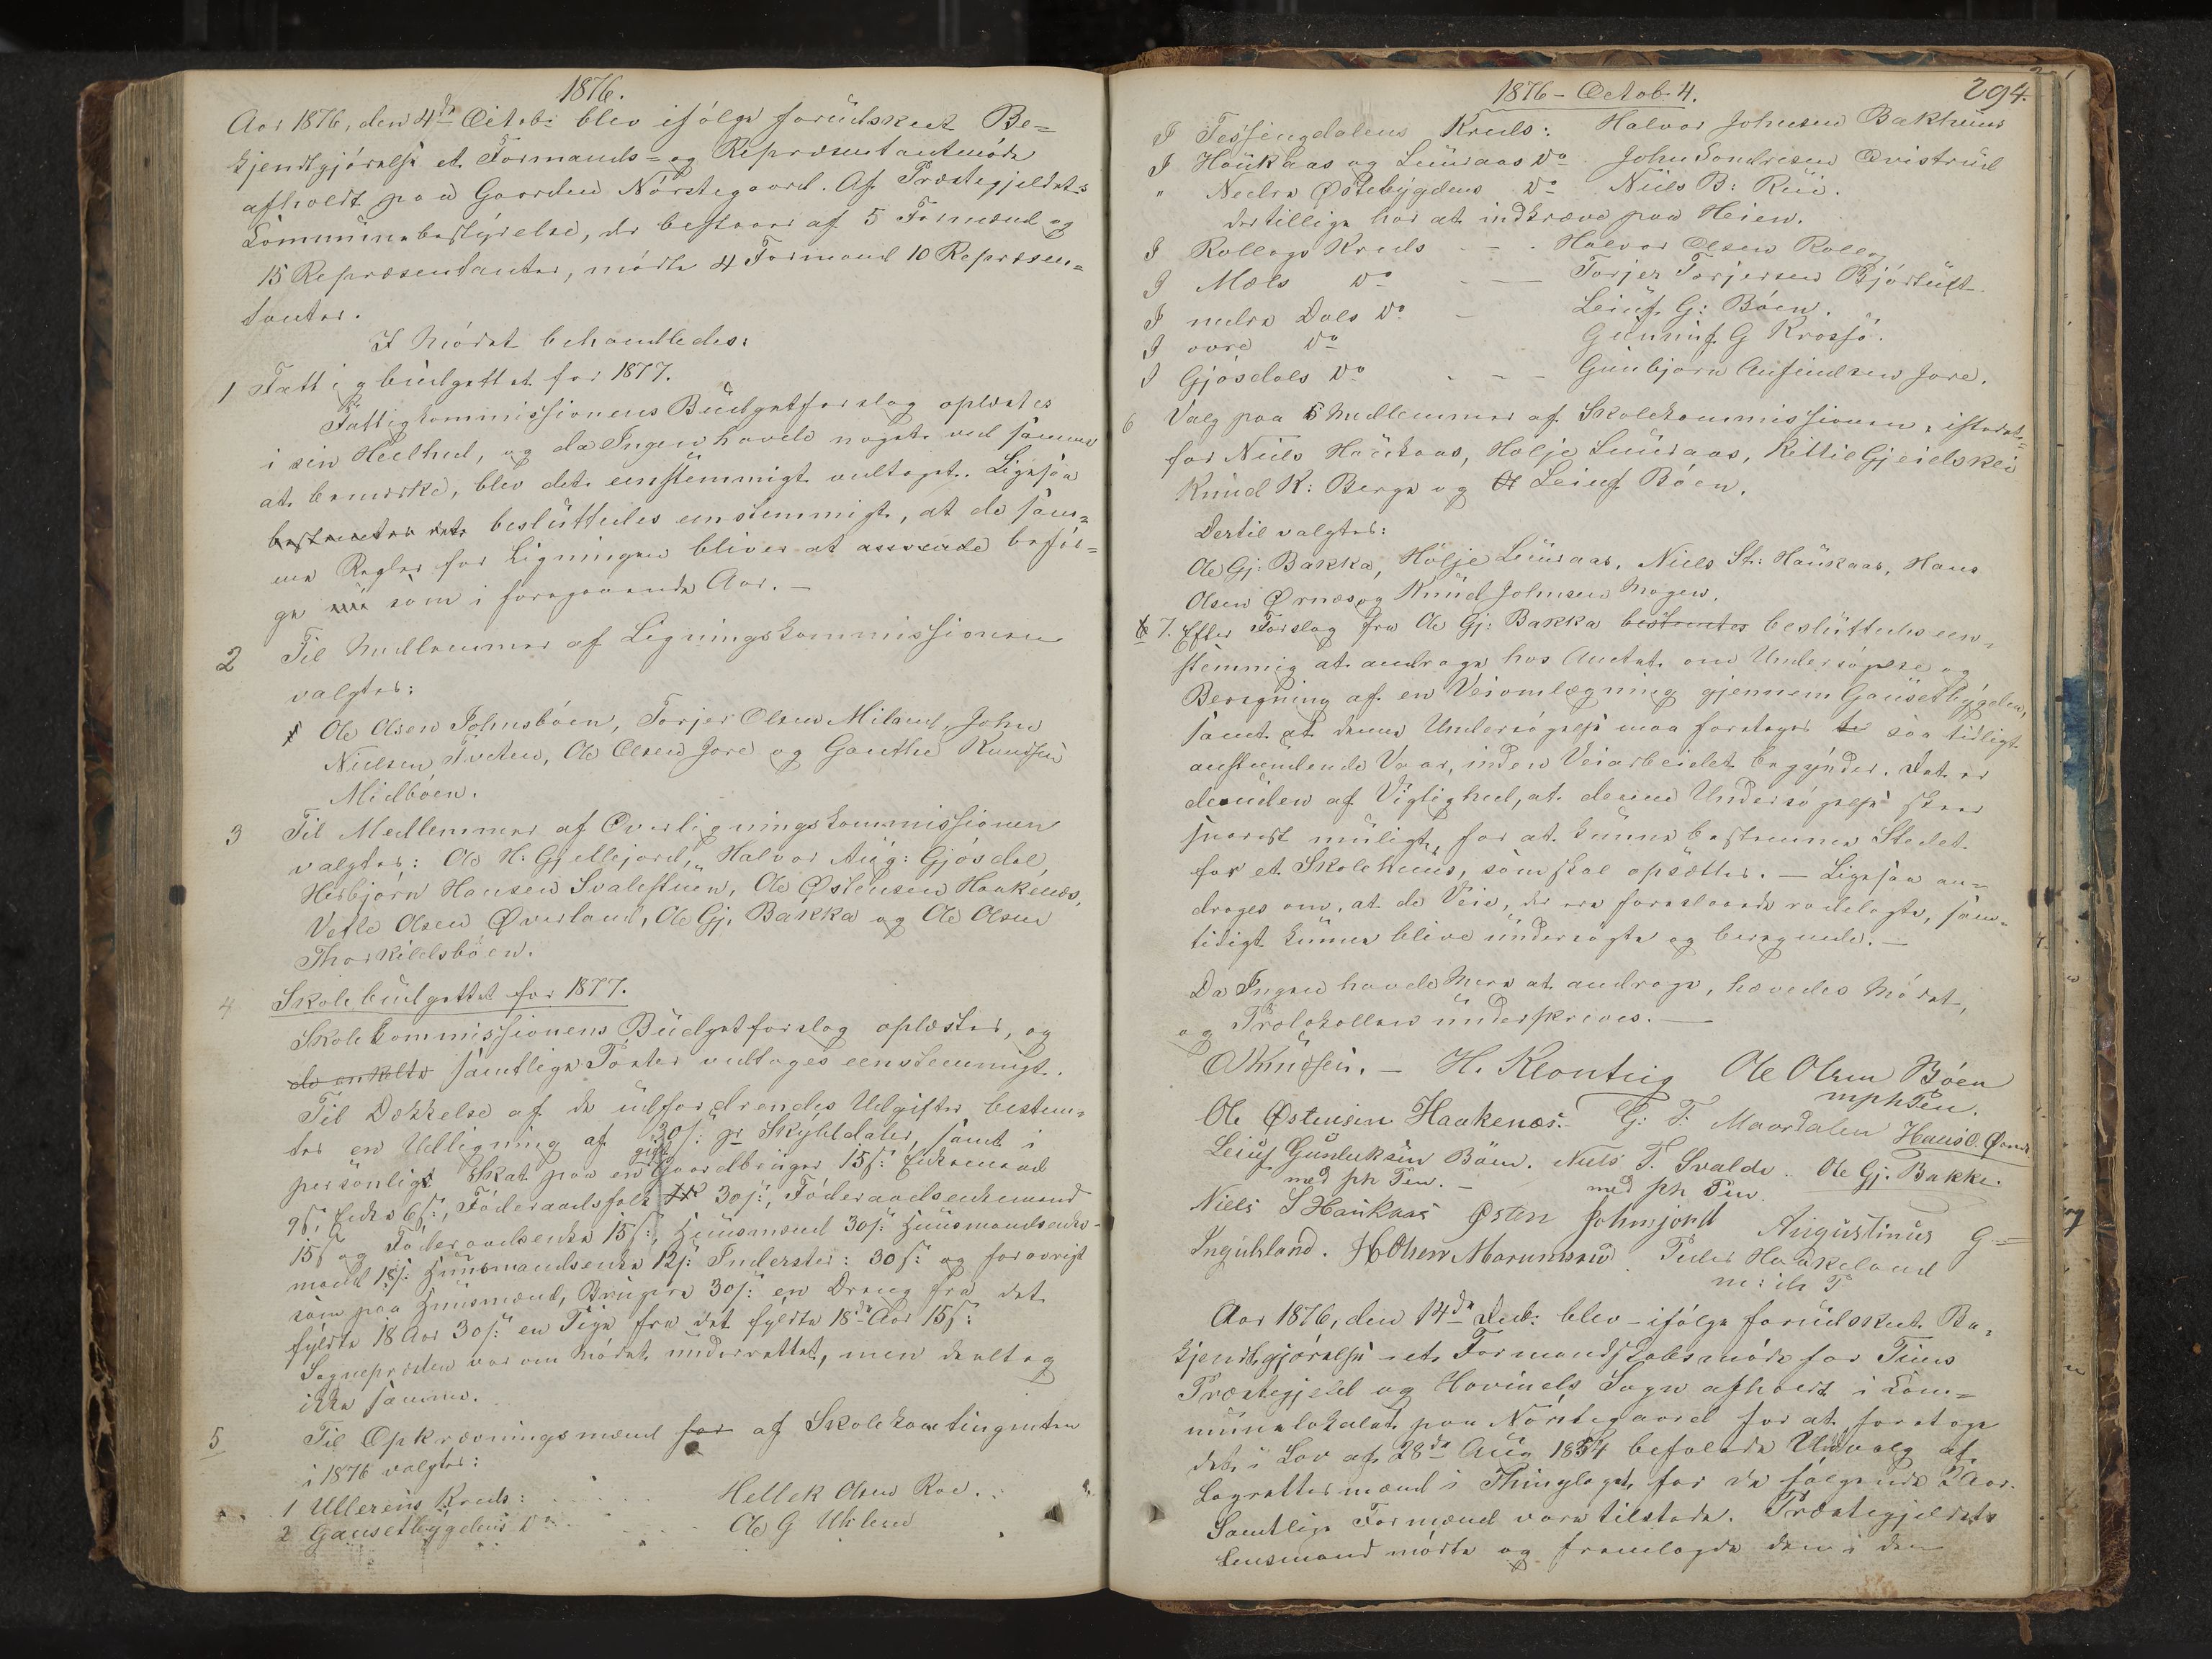 1876.
Aar 1876, den 4de Octob: blev ifølge forudskeet Be=
kjendtgjørelse et Formands= og Repræsentantmøde
afholdt paa Gaarden Nørstegaard. Af Præstegjeldets
Communebestyrelse, der bestaaer af 5 Formænd og
15 Repræsentanter, mødte 4 Formænd 10 Repræsen=
tanter.
I Mødet behandledes:
1 Fattigbudgettet for 1877.
Fattigkommissionens Budgetforslag oplæstes
i sin Heelhed, og da Ingen havde noget ved samme
at bemærke, blev det eenstemmigt vedtaget. Ligesaa
bestemtes det besluttedes eenstemmigt, at de sam=
me Regler for Ligningen bliver at anvende beføl=
ge nu som i foregaaende Aar. —
2 Til Medlemmer af Ligningskommissionen
valgtes:
Ole Olsen Johnsbøen, Torjer Olsen Miland, John
Nielsen Tveten, Ole Olsen Jore og Gauthe Knudsen
Midbøen.
3 Til Medlemmer af Overligningskommissionen
valgtes: Ole H. Gjellejord, Halvor Aug: Gjøsdal,
Herbjørn Hansen Svalestuen, Ole Østensen Haakenæs,
Vetle Olsen Øverland, Ole Gj. Bakka og Ole Olsen
Thorkildsbøen.
4 Skolebudgettet for 1877.
Skolekommissionens Budgetforslag oplæstes, og
de enkelte samtlige Poster vedtoges eenstemmigt.
Til Dækkelse af de udfordrendes Udgifter bestem=
tes en Udligning af 30 s: pr Skylddaler, samt i
personligt Skat paa en gift Gaardbruger 15 s: Enkemand
9 s, Enke 6 s:, Føderaadsfolk 30 s:, Føderaadsenkemand
15 s og Føderaadsenke 15 s:, Huusmænd 30 s: Huusmandsenke=
mand 18 s: Huusmandsenke 12 s: Inderster: 30 s: og forøvrigt
som paa Huusmænd, Brugere 30 s: en Dreng fra det
fyldte 18 Aar 30 s: en Pige fra det fyldte 18de Aar 15 s:
Sognepræsten var om Mødet underrettet, men deeltog
ikke samme.
5 Til Opkrævningsmænd for af Skolekontingenten
i 1876 valgtes:
1 Ullerens Kreds: Hellek Olsen Roe.
2 Gausetbygdens Do Ole G Uhlen
1876 - Octob. 4. 294.
I Tessingdalens Kreds: Halvor Johnsen Bakhuus
I Haukaas og Luuraas Do John Sondresen Qvistrud
" Nedre Østebygdens Do Niels B: Rui.
der tillige har at indkræve paa Heien.
I Rollags Kreds - - Halvor Olsen Rollag
I Mæls Do - — Torjer Torjersen Bjørtuft
I nedre Dals Do - Leiuf G: Bøen.
I øvre Do Gunnuf G Krossø.
I Gjøsdals Do - - - Gunbjørn Anfindsen Jore.
6 Valg paa 5 Medlemmer af Skolekommissionen, istedet=
for Niels Haukaas, Hølje Luuraas, Kittil Gjeidskei
Knud K: Berge og Leiuf Bøen.
Dertil valgtes:
Ole Gj: Bakka, Hølje Luuraas, Niels St: Haukaas, Hans
Olsen Ørnæs og Knud Johnsen Mogen.
7. Efter Forslag fra Ole Gj: Bakka bestemtes besluttedes een=
stemmig at andrage hos Amtet om Undersøgelse og
Beregning af en Veiomlægning gjennem Gausetbygden,
samt at denne Undersøgelse maa foretages saa tidligt
anstundende Vaar, inden Veiarbeidet begynder. Det er
desuden af Vigtighed, at denne Undersøgelse skeer
snarest muligt, for at kunne bestemme Stedet
for et Skolehuus, som skal opsættes. — Ligesaa an=
drages om, at de Veie, der ere foreslaaede rodelagte, sam=
tidigt kunne blive undersøgte og beregnede. —
Da Ingen havde Mere at andrage, hævedes Mødet,
og Protokollen underskrives. —
O Knudsen. — H. Klonteig Ole Olsen Bøen
mph Pen.
Ole Østensen Haakenæs. G: T. Maardalen Hans O. Ørnæs
Leiuf Gunleiksen Bøen. Niels T. Svalde. Ole Gj. Bakke.
med ph Pen. — med ph Pen
Niels S Haukaas Østen Johnsjord Augustinus G. =
Ingulfsland. H Olsen Marumsrud. Peder Haakeland
m: ih P
Aar 1876, den 14de Decb: blev - ifølge forudskeet Be=
kjendtgjørelse - et Formandskabsmøde for Tinns
Præstegjeld og Hovinds Sogn afholdt i Com=
munelokalet paa Nørstegaard for at foretage
det i Lov af 28de Aug 1854 befalede Udvalg af
Lagrettesmænd i Thinglaget for de følgende 2 Aar.
Samtlige Formænd vare tilstede. Præstegjeldets
Lensmand mødte og fremlagde den i den